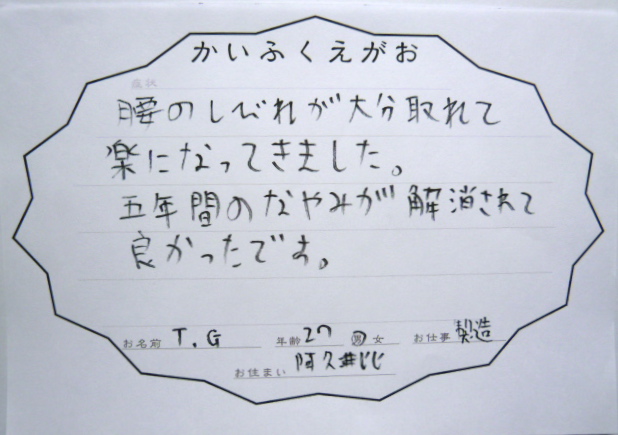 かいふくえがお
症状
腰のしびれが大分取れて
楽になってきました。
五年間のなやみが解消されて
良かったです。
お名前 T.G 年齢 27 男 女 お仕事 製造
お住まい 阿久比